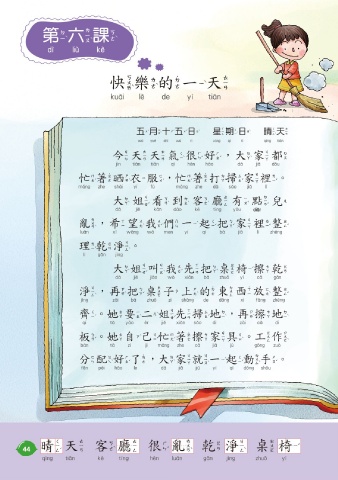 第六課
dì liù kè
快樂的一天
kuài lè de yì tiān
五月十五日 星期日 晴天
今天天氣很好，大家都
忙著晒衣服，忙著打掃家裡。
大姐看到客廳有點兒
亂，希望我們一起把家裡整
理乾淨。
大姐叫我先把桌椅擦乾
淨，再把桌子上的東西放整
齊。她要二姐先掃地，再擦地
板。她自己忙著擦家具。工作
分配好了，大家就一起動手。
44 晴天 客廳 很亂 乾淨 桌椅
qíng tiān kè tīng hěn luàn gān jìng zhuō yǐ